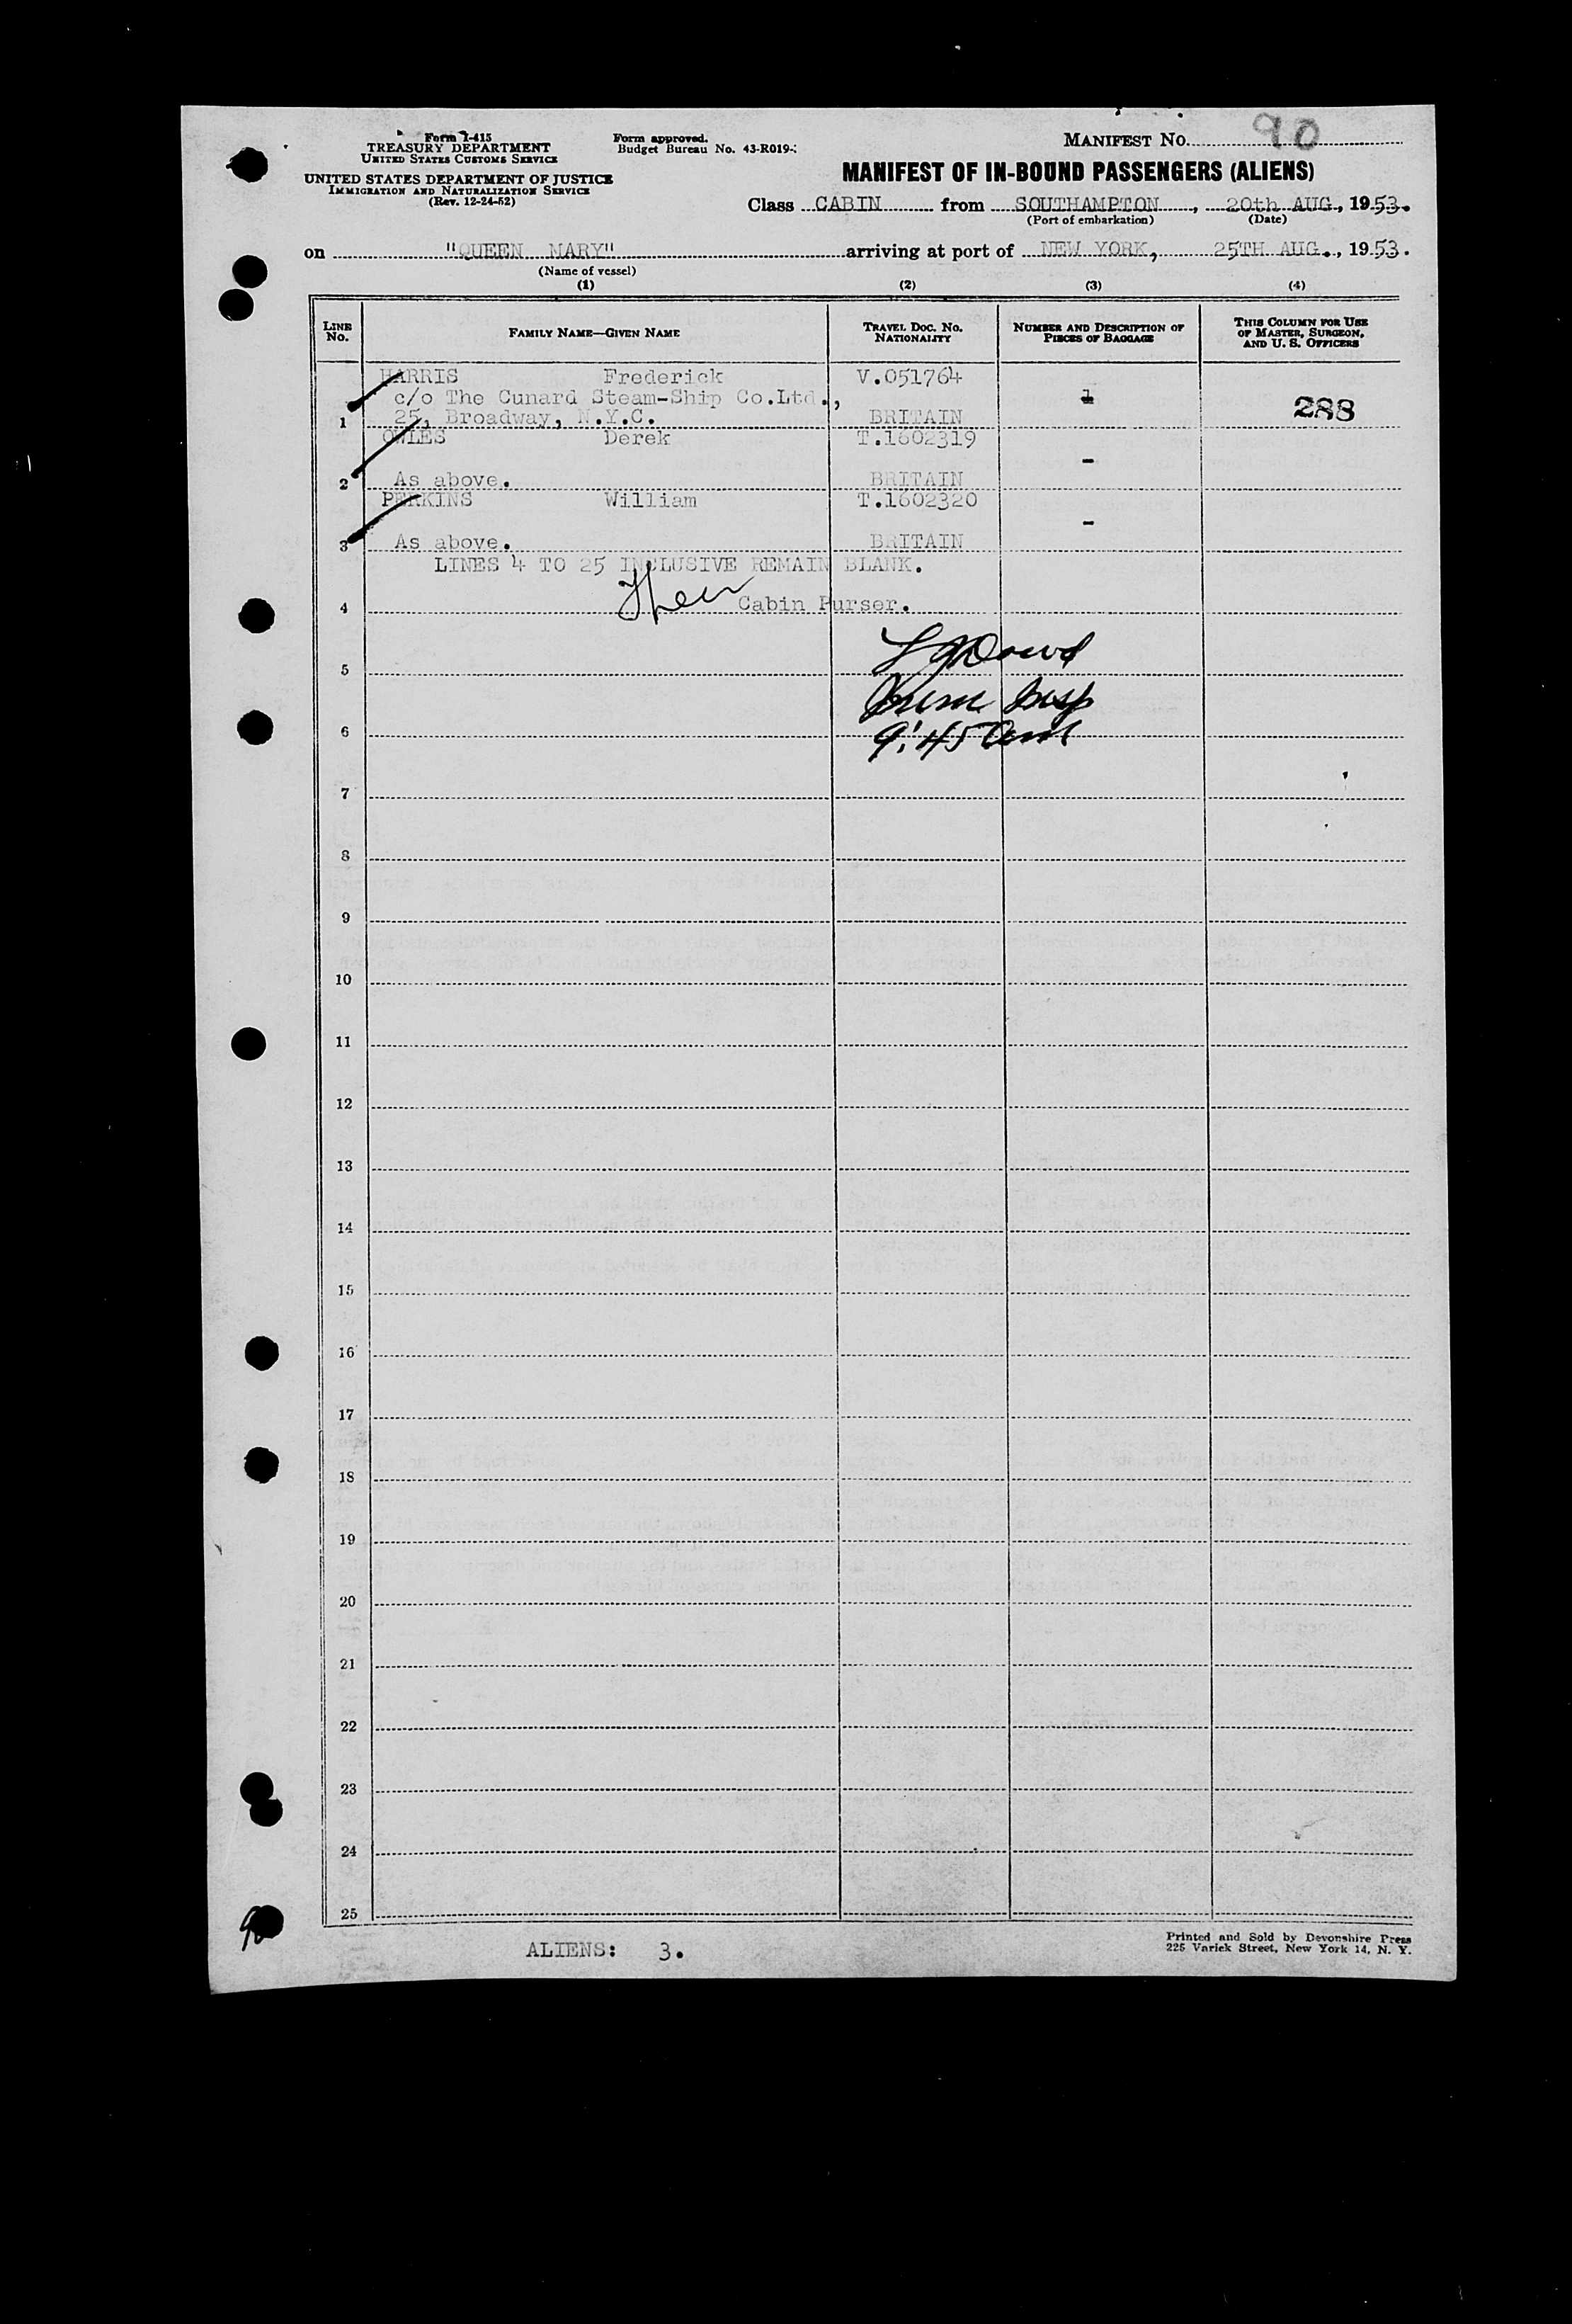 Form I-415
TREASURY DEPARTMENT
UNITED STATES CUSTOMS SERVICE
UNITED STATES DEPARTMENT OF JUSTICE
IMMIGRATION AND NATURALIZATION SERVICE
(Rev. 12-24-52)
Form approved.
Budget Bureau No. 43-R019-
MANIFEST No. 90
MANIFEST OF IN-BOUND PASSENGERS (ALIENS)
Class CABIN from SOUTHAMPTON, 20th AUG., 1953.
(Port of embarkation) (Date)
on "QUEEN MARY" arriving at port of NEW YORK, 25TH AUG., 1953.
(Name of vessel)
(1) (2) (3) (4)
LINE No. FAMILY NAME—GIVEN NAME TRAVEL DOC. No. NATIONALITY NUMBER AND DESCRIPTION OF PIECES OF BAGGAGE THIS COLUMN FOR USE OF MASTER, SURGEON, AND U. S. OFFICERS
HARRIS Frederick V.051764
c/o The Cunard Steam-Ship Co.Ltd., 1 288
1 25, Broadway, N.Y.C. BRITAIN
OWLES Derek T.1602319
-
2 As above. BRITAIN
PERKINS William T.1602320
-
3 As above. BRITAIN
LINES 4 TO 25 INCLUSIVE REMAIN BLANK.
4 Cabin Purser.
5
Insp
6 9:45 am
7
8
9
10
11
12
13
14
15
16
17
18
19
20
21
22
23
24
25
ALIENS: 3.
Printed and Sold by Devonshire Press
225 Varick Street, New York 14, N. Y.